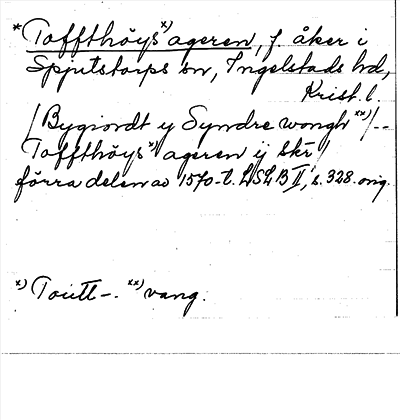 *Toffthöys x) ageren, f. åker i
Spjutstorps sn, Ingelstads hd,
Krist. l.
/Bygiordt y Syndre wongh xx)/--
Toffthöys x) ageren ij skr/
förra delen av 1570-t. LSLB II, s. 328. orig.
x) Toutt-. xx) vang.